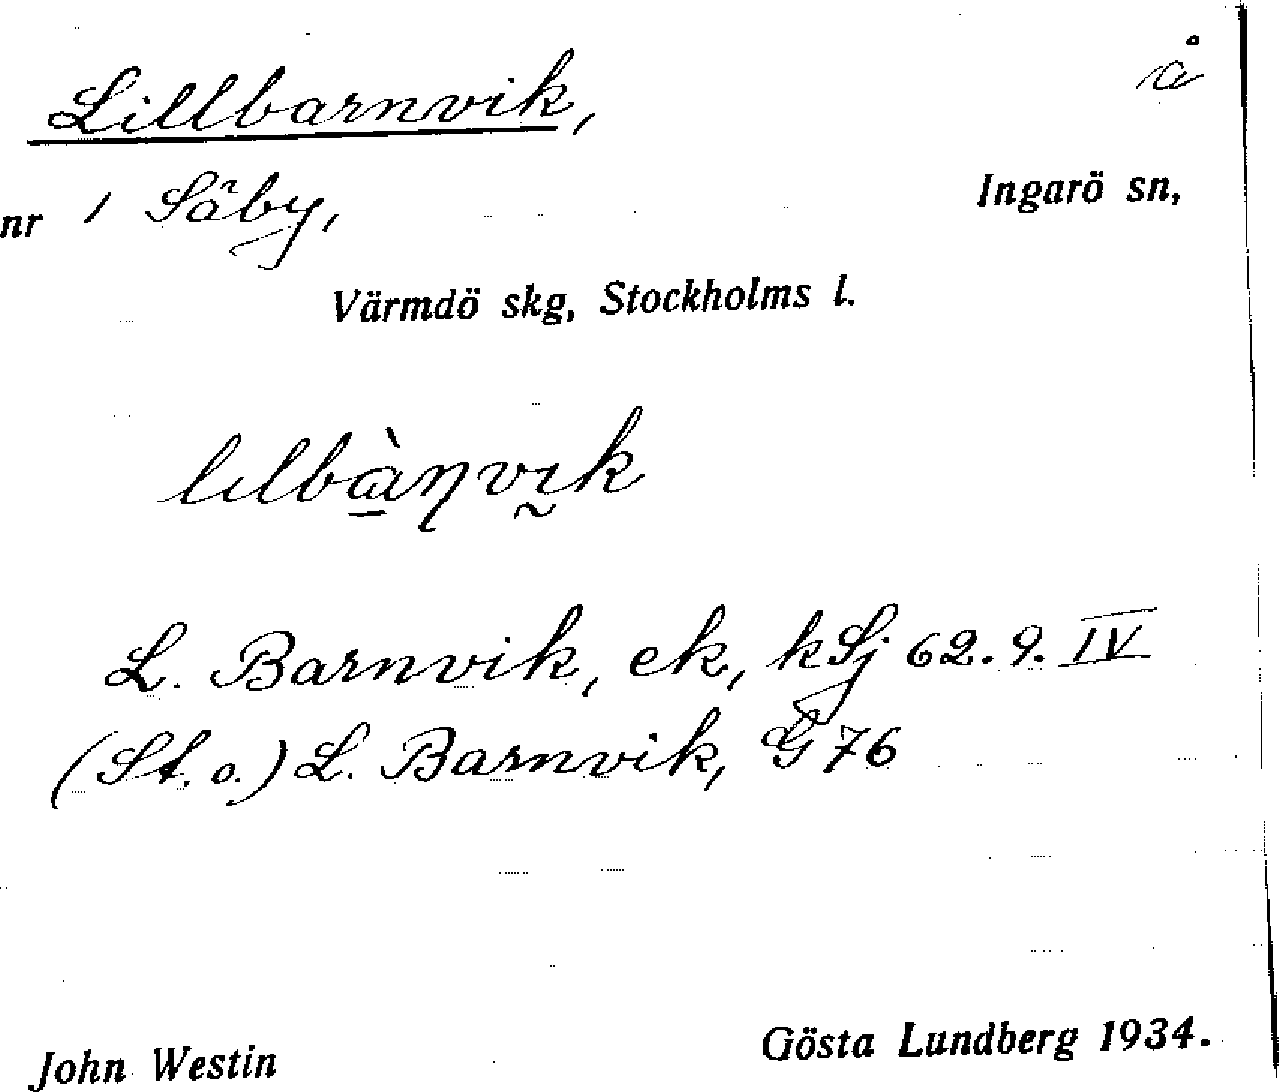 Lillbarnvik, å
nr 1 Säby, Ingarö sn,
Värmdö skg, Stockholms l.
L. Barnvik, ek, kSj 62.9. IV
(St. o.) L. Barnvik, G 76
John Westin Gösta Lundberg 1934.